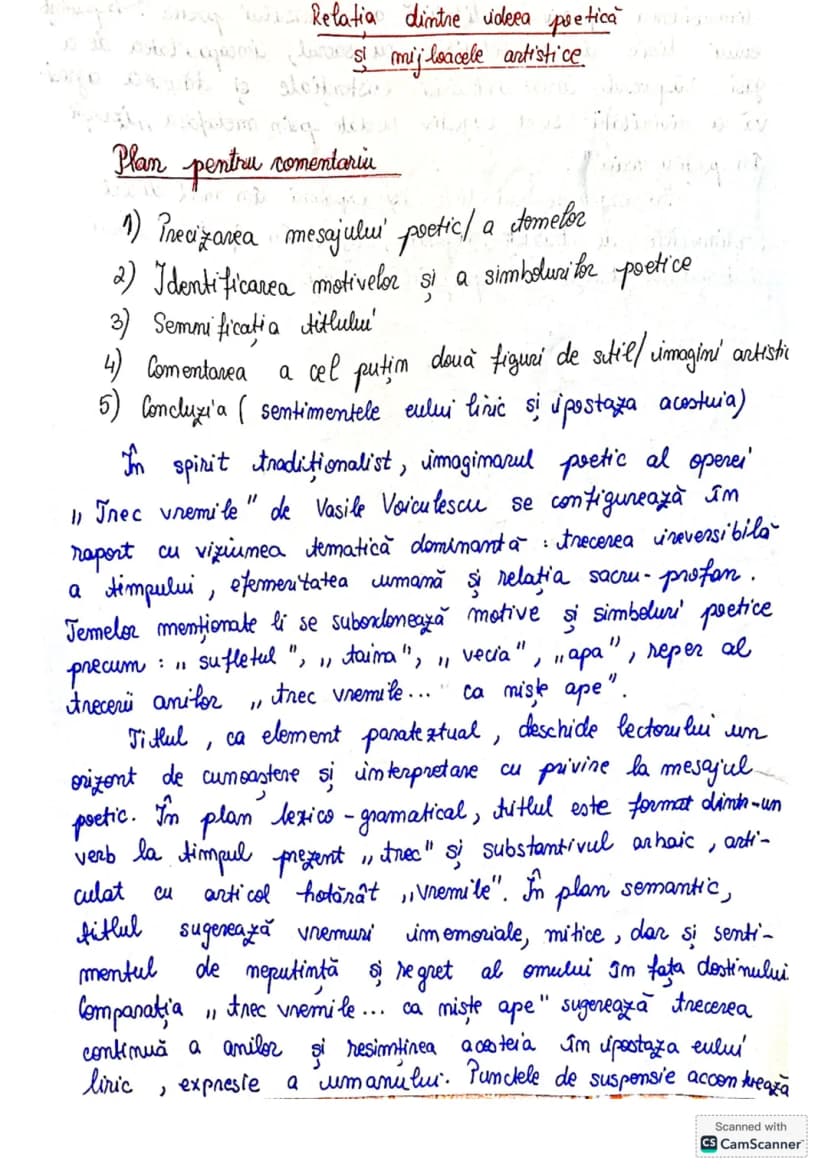 Relația dintre ideea poetică
și mijloacele artistice
Plan pentru comentariu
1) Precizarea mesajului poetic/ a temelor
2) Identificarea motivelor și a simbolurilor poetice
3) Semnificația titlului
4) Comentarea a cel puțin două figuri de stil/ imagini artistic
5) Concluzia ( sentimentele eului liric și ipostaza acestuia)
În spirit tradiționalist, imaginarul poetic al operei
„Trec vremile" de Vasile Voiculescu se configurează în
raport cu viziunea tematică dominantă : trecerea ireversibilă
a timpului, efemeritatea umană și relația sacru-profan.
Temelor menționate li se subordonează motive și simboluri poetice
precum : „sufletul", „taina", „vecia", „apa", reper al
trecerii anilor „trec vremile..." ca niște ape".
Titlul, ca element paratextual, deschide lectorului un
orizont de cunoaștere și interpretare cu privire la mesajul
poetic. În plan lexico-gramatical, titlul este format dintr-un
verb la timpul prezent „trec" și substantivul arhaic, arti-
culat cu articol hotărât „vremile". În plan semantic,
titlul sugerează vremuri imemoriale, mitice, dar și senti-
mentul de neputință și regret al omului în fața destinului.
Comparația „trec vremile... ca niște ape" sugerează trecerea
continuă a anilor și resimțirea acesteia în ipostaza eului
liric, expresie a umanului. Punctele de suspensie accentrează
Scanned with
CS CamScanner